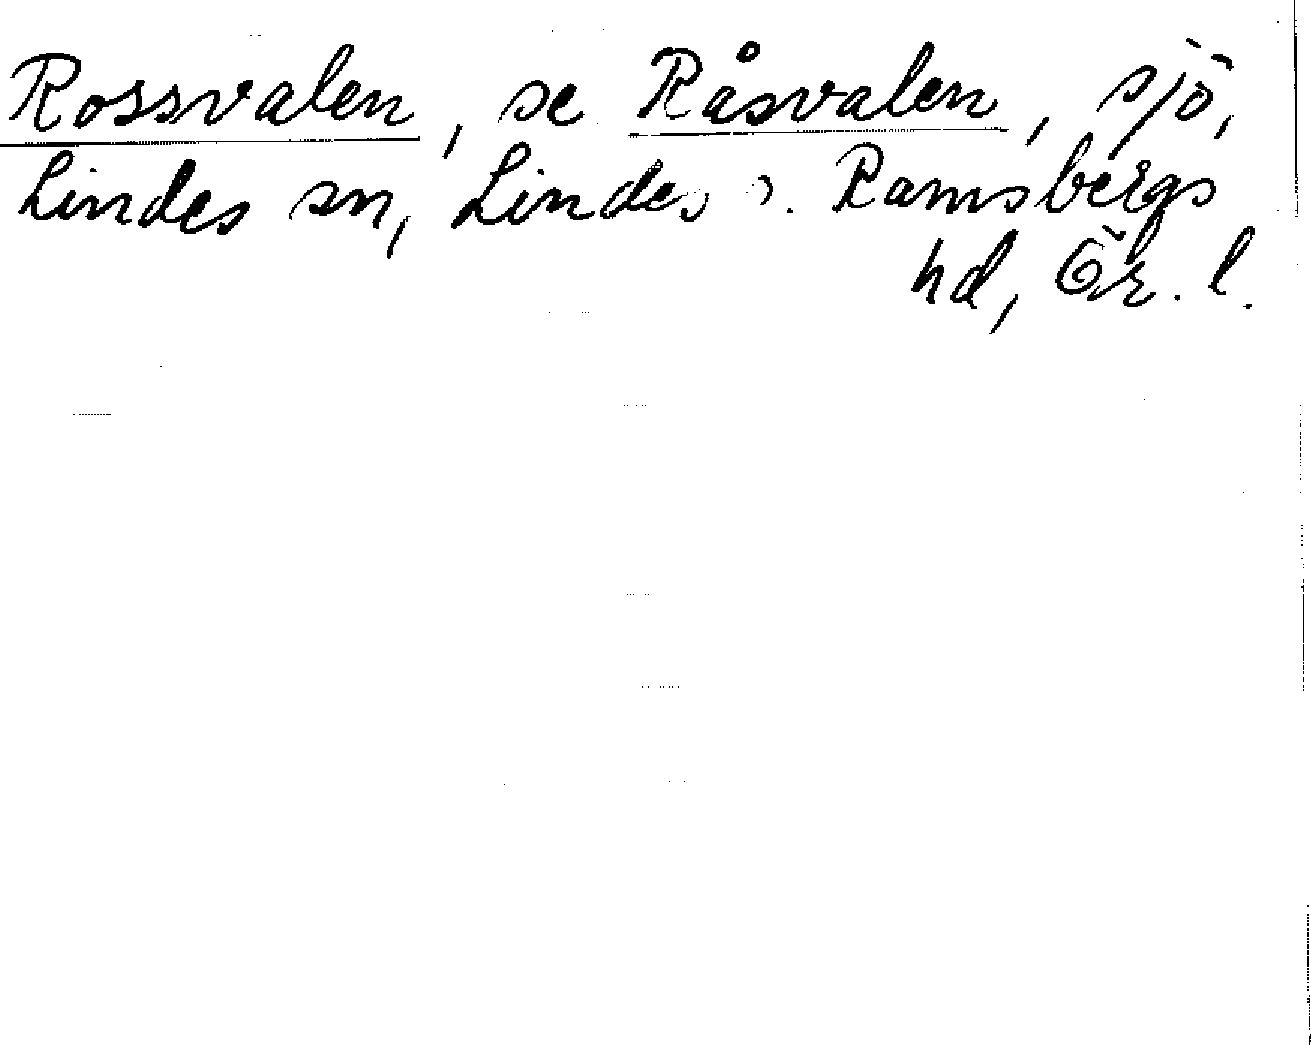 Rossvalen, se Råsvalen, sjö,
Lindes sn, Lindes o. Ramsbergs
hd, Ör. l.